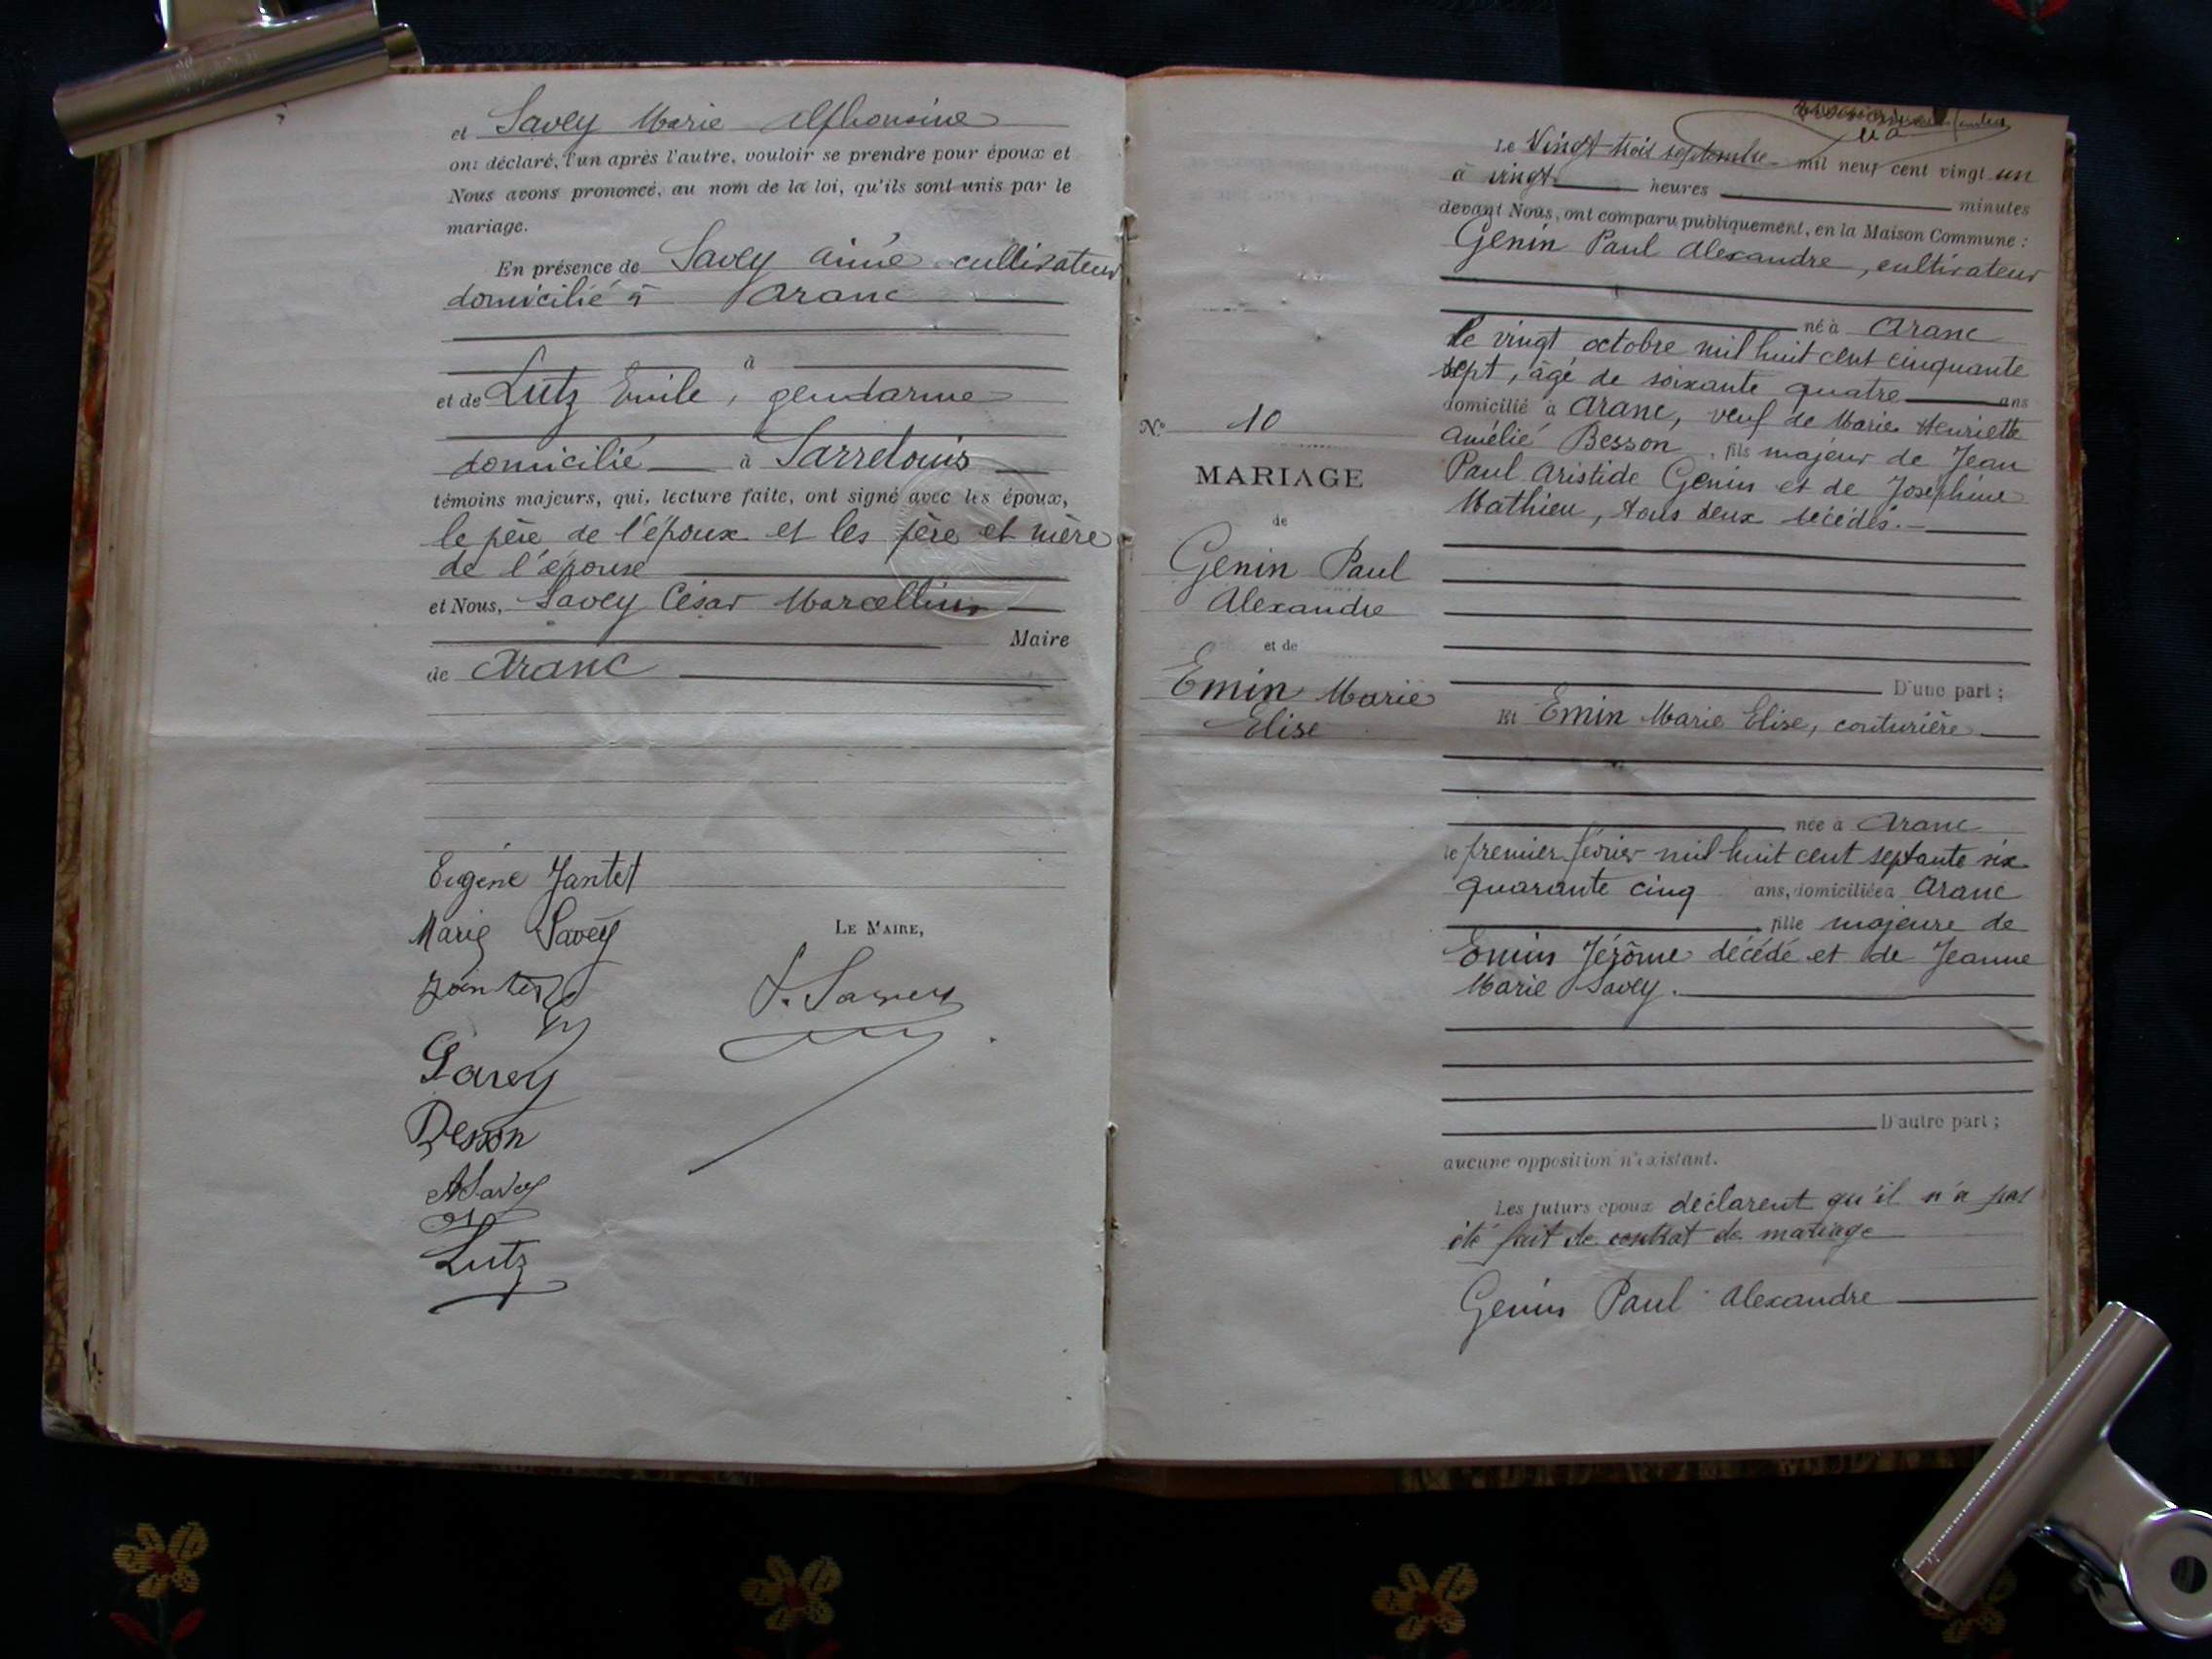 et Savey Marie Alphonsine
ont déclaré, l'un après l'autre, vouloir se prendre pour époux et
Nous avons prononcé, au nom de la loi, qu'ils sont unis par le
mariage.
En présence de Savey Aimé cultivateur
domicilié à Aranc
à
et de Lutz Emile, gendarme
domicilié à Sarrelouis
témoins majeurs, qui, lecture faite, ont signé avec les époux,
le père de l'époux et les père et mère
de l'épouse
et Nous, Savey César Marcellin
Maire
de Aranc
Eugène Jantet
Marie Savey
LE MAIRE,
Jantet
S. Savey
Savey
Besson
ASavey
Lutz
Le Vingt-trois septembre mil neuf cent vingt un
à vingt heures minutes
devant Nous, ont comparu publiquement, en la Maison Commune :
Genin Paul Alexandre, cultivateur
né à Aranc
le vingt octobre mil huit cent cinquante
sept, âgé de soixante quatre ans
domicilié à Aranc, veuf de Marie Henriette
Amélie Besson, fils majeur de Jean
Paul Aristide Genin et de Joséphine
Mathieu, tous deux décédés.
N° 10
MARIAGE
de
Genin Paul
Alexandre
et de
Emin Marie
Elise
D'une part ;
Et Emin Marie Elise, couturière
née à Aranc
le premier février mil huit cent septante six
quarante cinq ans, domiciliée à Aranc
fille majeure de
Emin Jérôme décédé et de Jeanne
Marie Savey.
D'autre part ;
aucune opposition n'existant.
Les futurs époux déclarent qu'il n'a pas
été fait de contrat de mariage
Genin Paul Alexandre